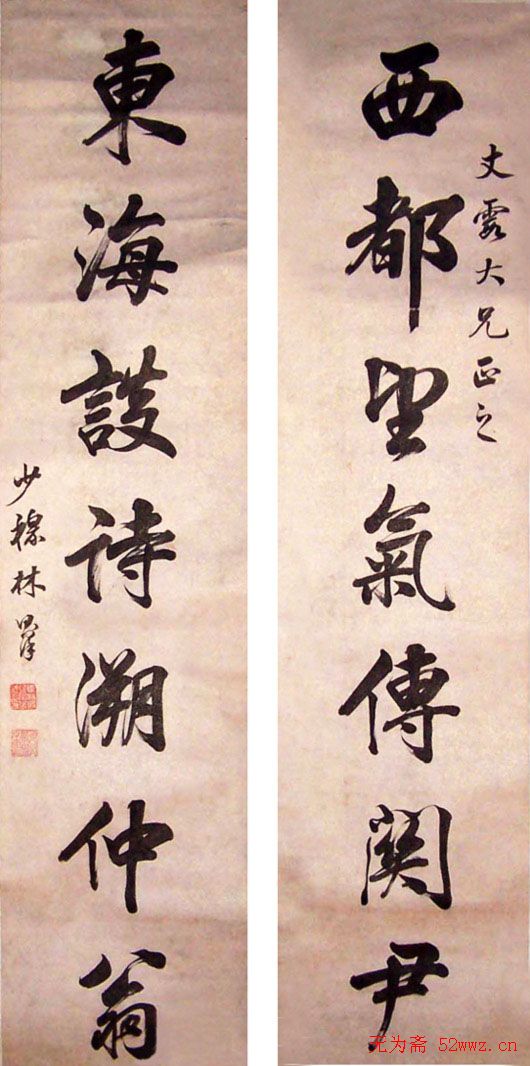 文霞大兄正之
西都望氣傳關尹
東海談詩溯仲翁
少穆林則徐
无为斋 52wwz.cn